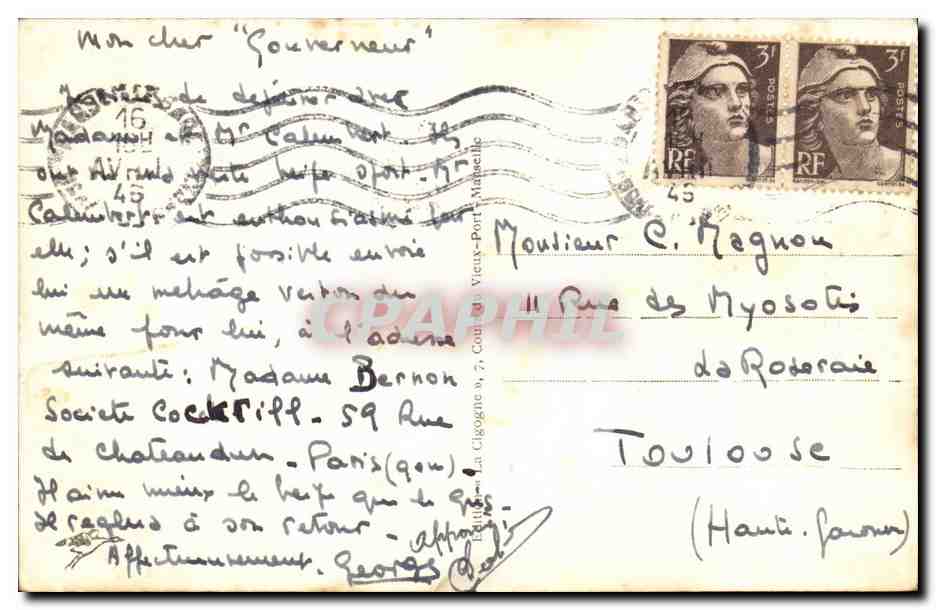 Mon cher "Gouverneur"
de déjeuner avec
Madame et Mr Calem
ont veste beige sport. Mr
est enthousiasmé par
elle; s'il est possible envoie
lui un métrage veston du
même pour lui, à l'adresse
suivante: Madame Bernon
Société Cockrill - 59 Rue
de Chateaudun - Paris (9em) -
Il aime mieux le beige que le gris
Il reglera à son retour -
Affectueusement. Georges
16
45
3f
POSTES
RF
3f
POSTES
RF
45
Monsieur C. Magnou
11 Rue des Myosotis
La Roseraie
TOULOUSE
(Haute-Garonne)
Edition « La Cigogne », 7, Cours du Vieux-Port - Marseille
CPAPHIL